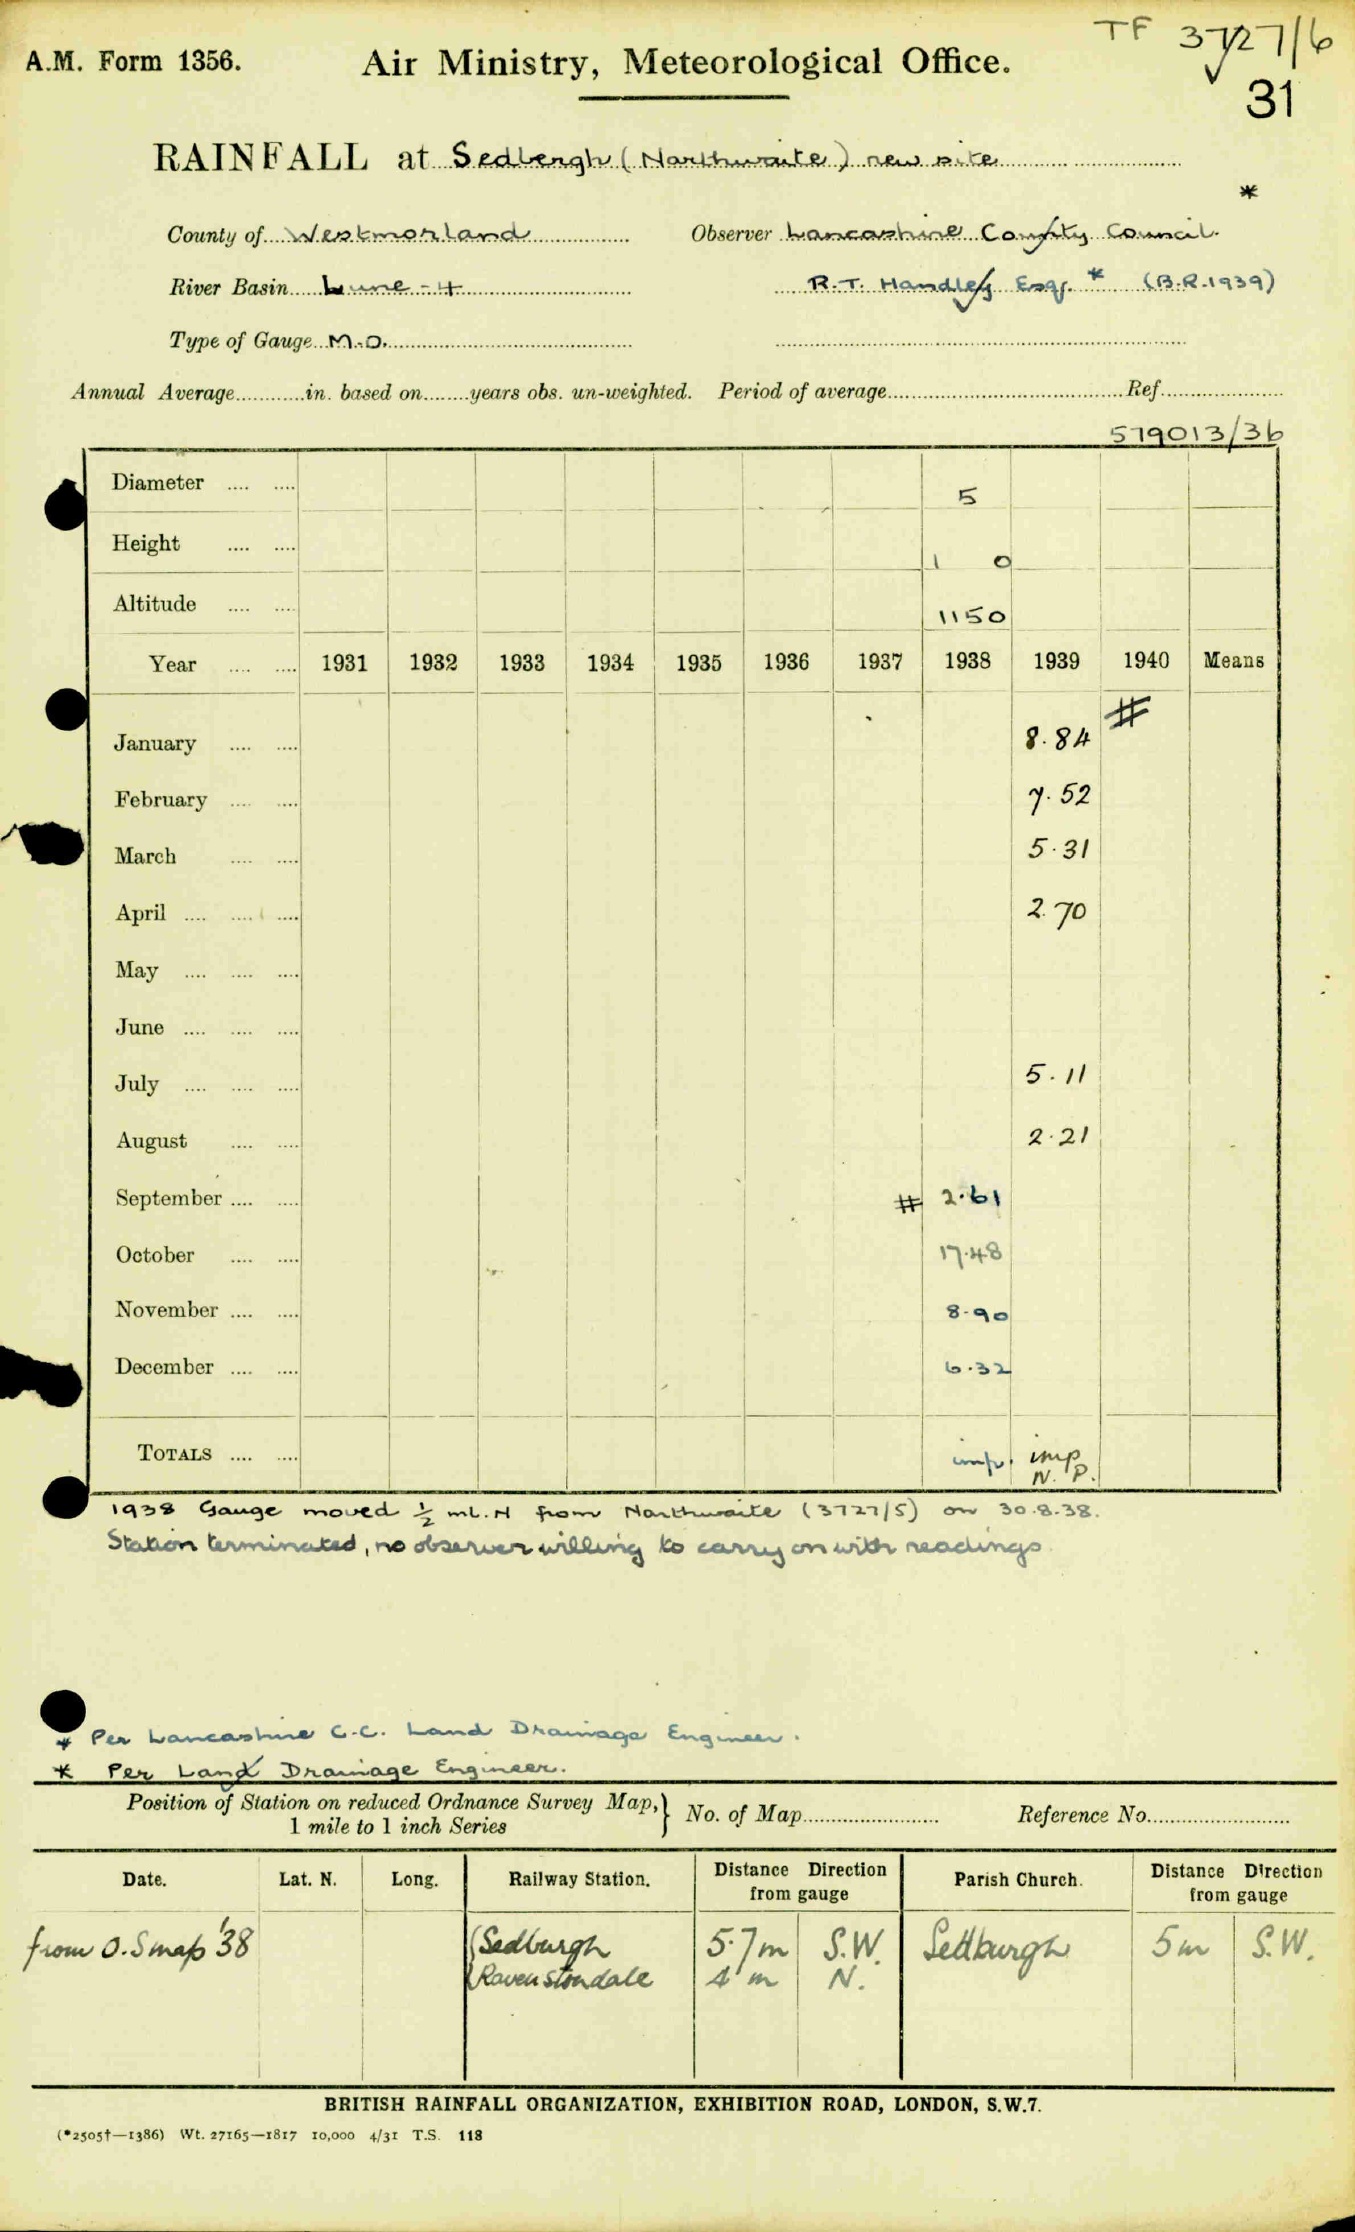 TF 3727/6
A.M. Form 1356. Air Ministry, Meteorological Office.
31
RAINFALL at Sedbergh (Narthwaite) new site
*
County of Westmorland Observer Lancashire County Council.
River Basin Lune - 4 R.T. Handley Esq. * (B.R. 1939)
Type of Gauge M.O.
Annual Average............in. based on........years obs. un-weighted. Period of average............Ref............
579013/36
Diameter .... .... 5
Height .... .... 1 0
Altitude .... .... 1150
Year .... .... 1931 1932 1933 1934 1935 1936 1937 1938 1939 1940 Means
January .... .... 8.84 #
February .... .... 7.52
March .... .... 5.31
April .... .... .... 2.70
May .... .... ....
June .... .... ....
July .... .... .... 5.11
August .... .... 2.21
September .... .... # 2.61
October .... .... 17.48
November .... .... 8.90
December .... .... 6.32
TOTALS .... .... imp. imp
N. P.
1938 Gauge moved ½ ml. N from Narthwaite (3727/5) on 30.8.38.
Station terminated, no observer willing to carry on with readings.
* Per Lancashire C.C. Land Drainage Engineer.
* Per Land Drainage Engineer.
Position of Station on reduced Ordnance Survey Map, } No. of Map............ Reference No............
1 mile to 1 inch Series
Date. Lat. N. Long. Railway Station. Distance Direction Parish Church. Distance Direction
from gauge from gauge
from O.S map '38 Sedburgh 5.7m S.W. Sedburgh 5m S.W.
Ravenstondale 4 m N.
BRITISH RAINFALL ORGANIZATION, EXHIBITION ROAD, LONDON, S.W.7.
(*2505†—1386) Wt. 27165—1817 10,000 4/31 T.S. 118